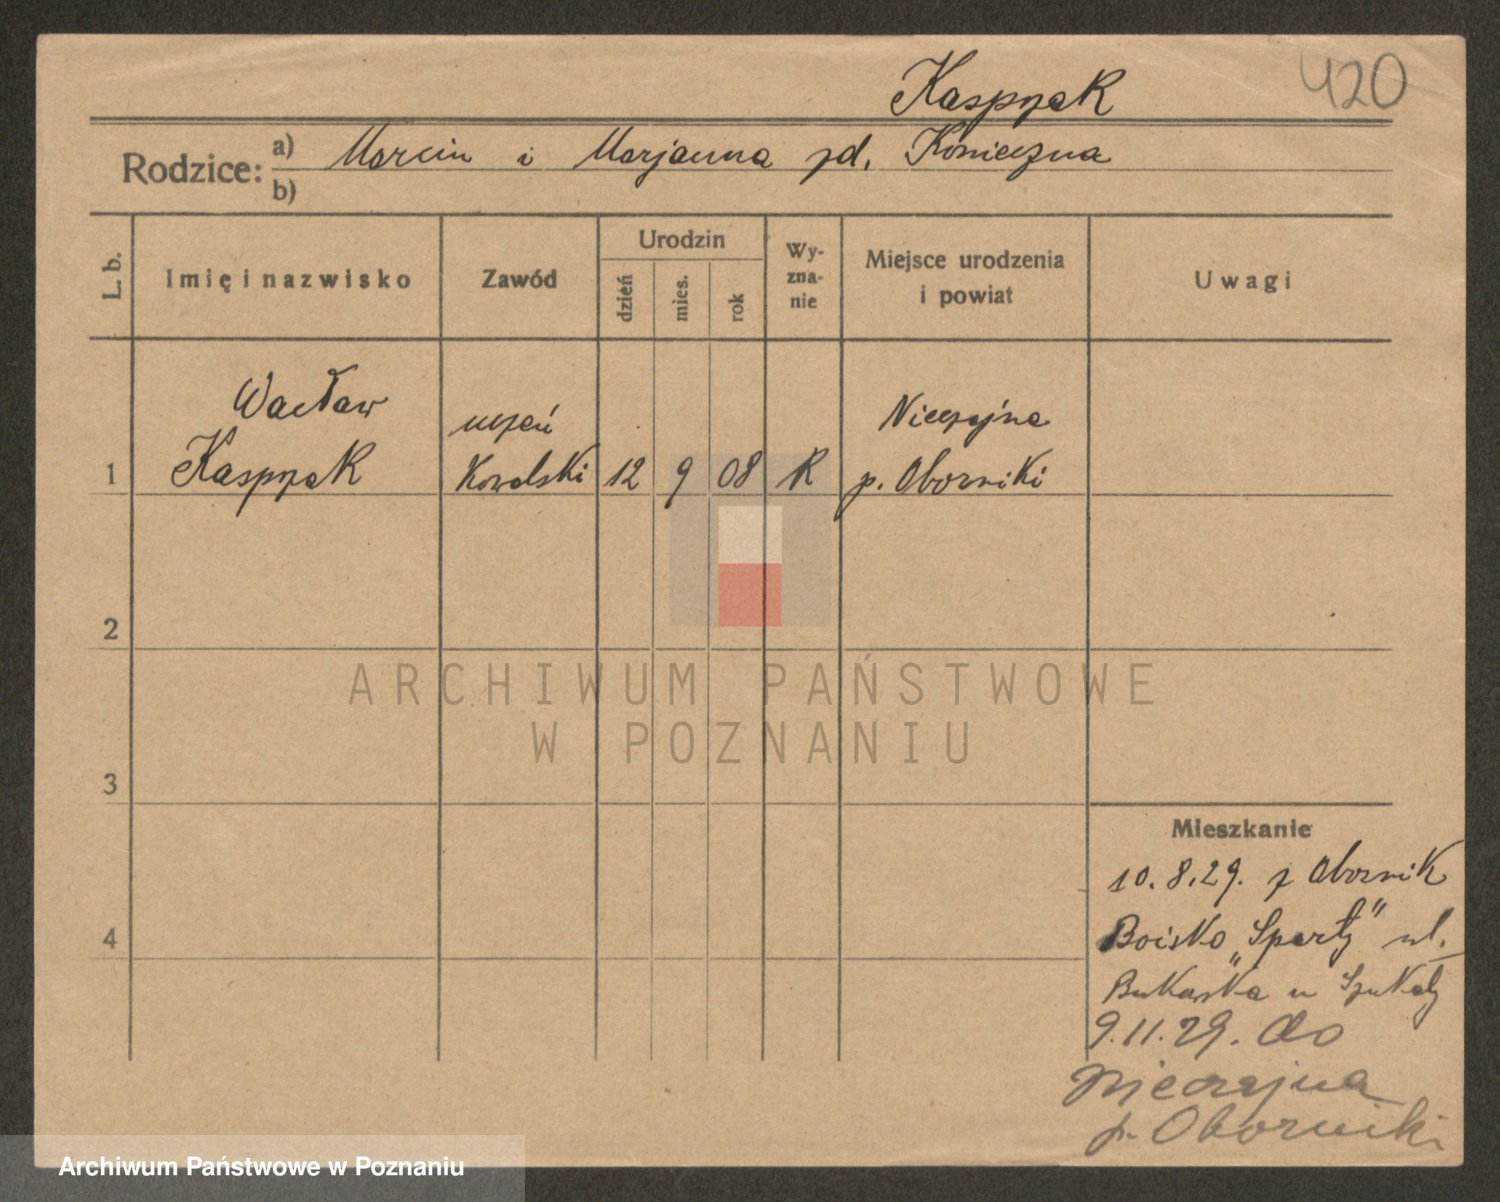 420
Kasprzak
Rodzice: a) Marcin i Marjanna zd. Konieczna
b)
L. b.
Imię i nazwisko
Zawód
Urodzin
dzień
mies.
rok
Wy-
zna-
nie
Miejsce urodzenia
i powiat
Uwagi
Wacław
Kasprzak
uczeń
Kowalski
12
9
08
R
Nieczajna
p. Oborniki
1
2
3
4
ARCHIWUM PAŃSTWOWE
W POZNANIU
Mieszkanie
10.8.29. z Obornik
Boisko „Sparty" ul.
Bukowska u
9.11.29. do
Nieczajna
p. Oborniki
Archiwum Państwowe w Poznaniu